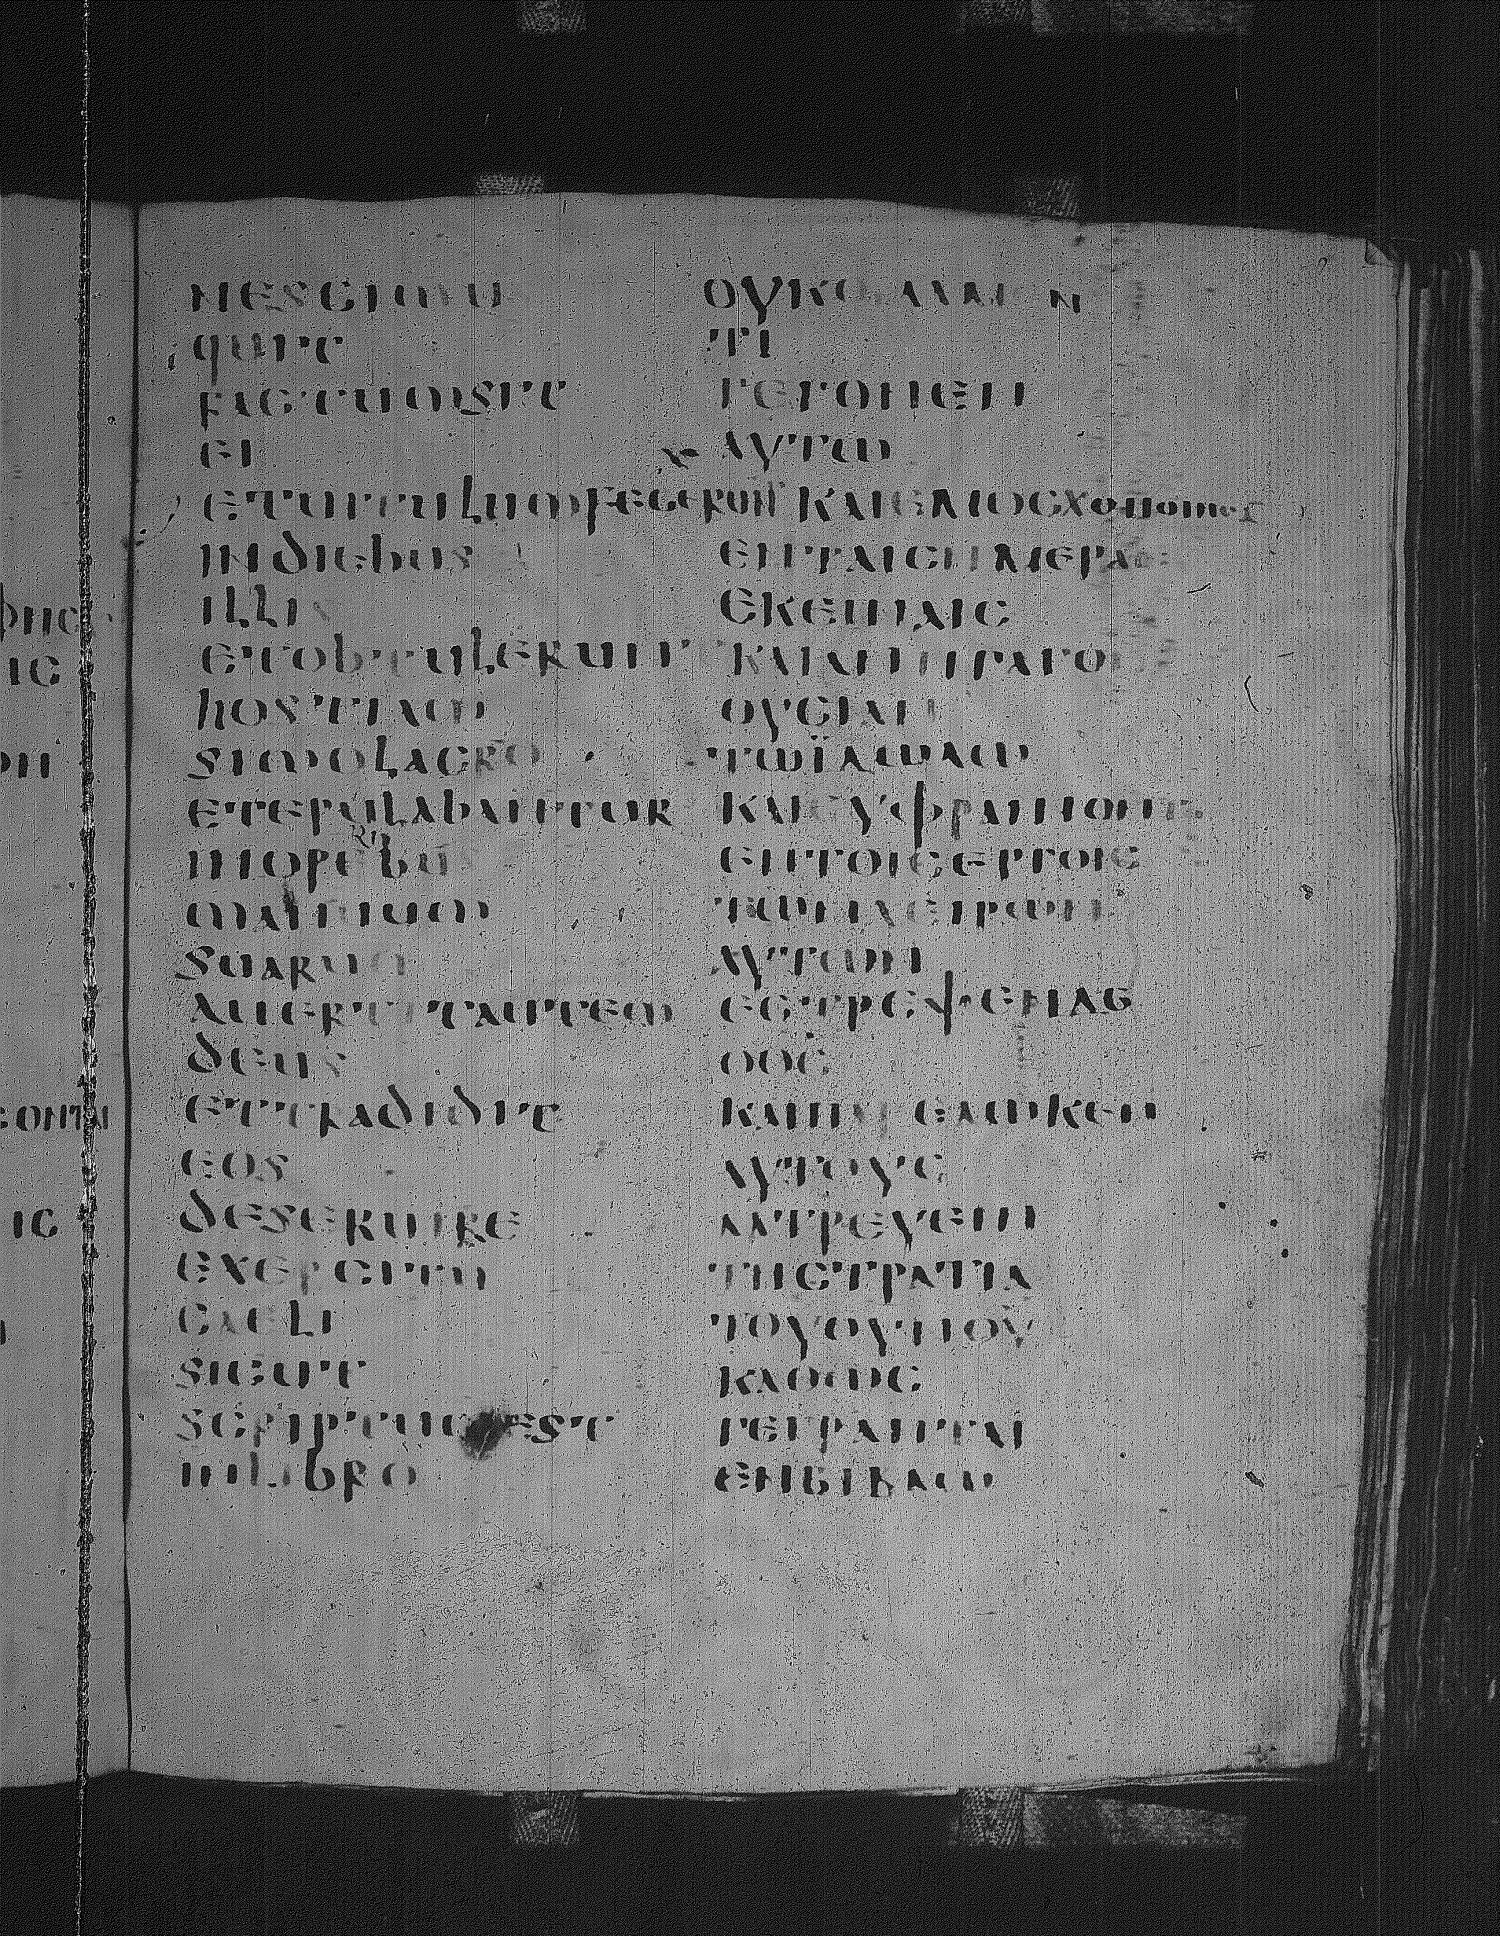 nescimus
quit
factumsit
ei
etuitulumfecerun
indiebus
illis
etobtulerunt
hostiam
simolacro
etepulabantur
inoperibus
manuum
suarum
auertitautem
deus
ettradidit
eos
deseruire
exercitui
caeli
sicut
scriptumest
inlibro
ουκοιδαμεν
τι
γεγονεν
αυτω
ενταισημεραισ
εκειναισ
καιανηγαγο
θυσιαν
τωϊδωλω
καιευφραινοντο
εντοισεργοισ
τωνχειρων
αυτων
εστρεψενδε
οθσ
καιπαρεδωκεν
αυτουσ
λατρευειν
τηστρατια
τουουνου
καθωσ
γεγραπται
ενβιβλω